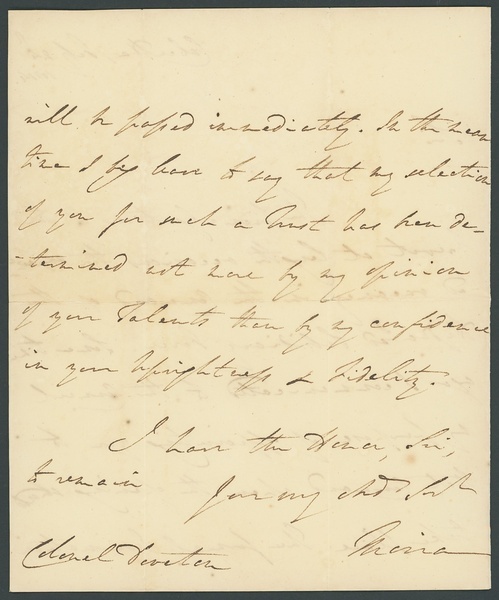 will be passed immediately. In the mean
time I beg leave to say that my selection
of you for such a Trust has been de-
-termined not more by my opinion
of your Talents than by my confidence
in your Uprightness & Fidelity.
I have the Honor, Sir,
to remain Your very Obd Sert
Colonel Doveton Moira